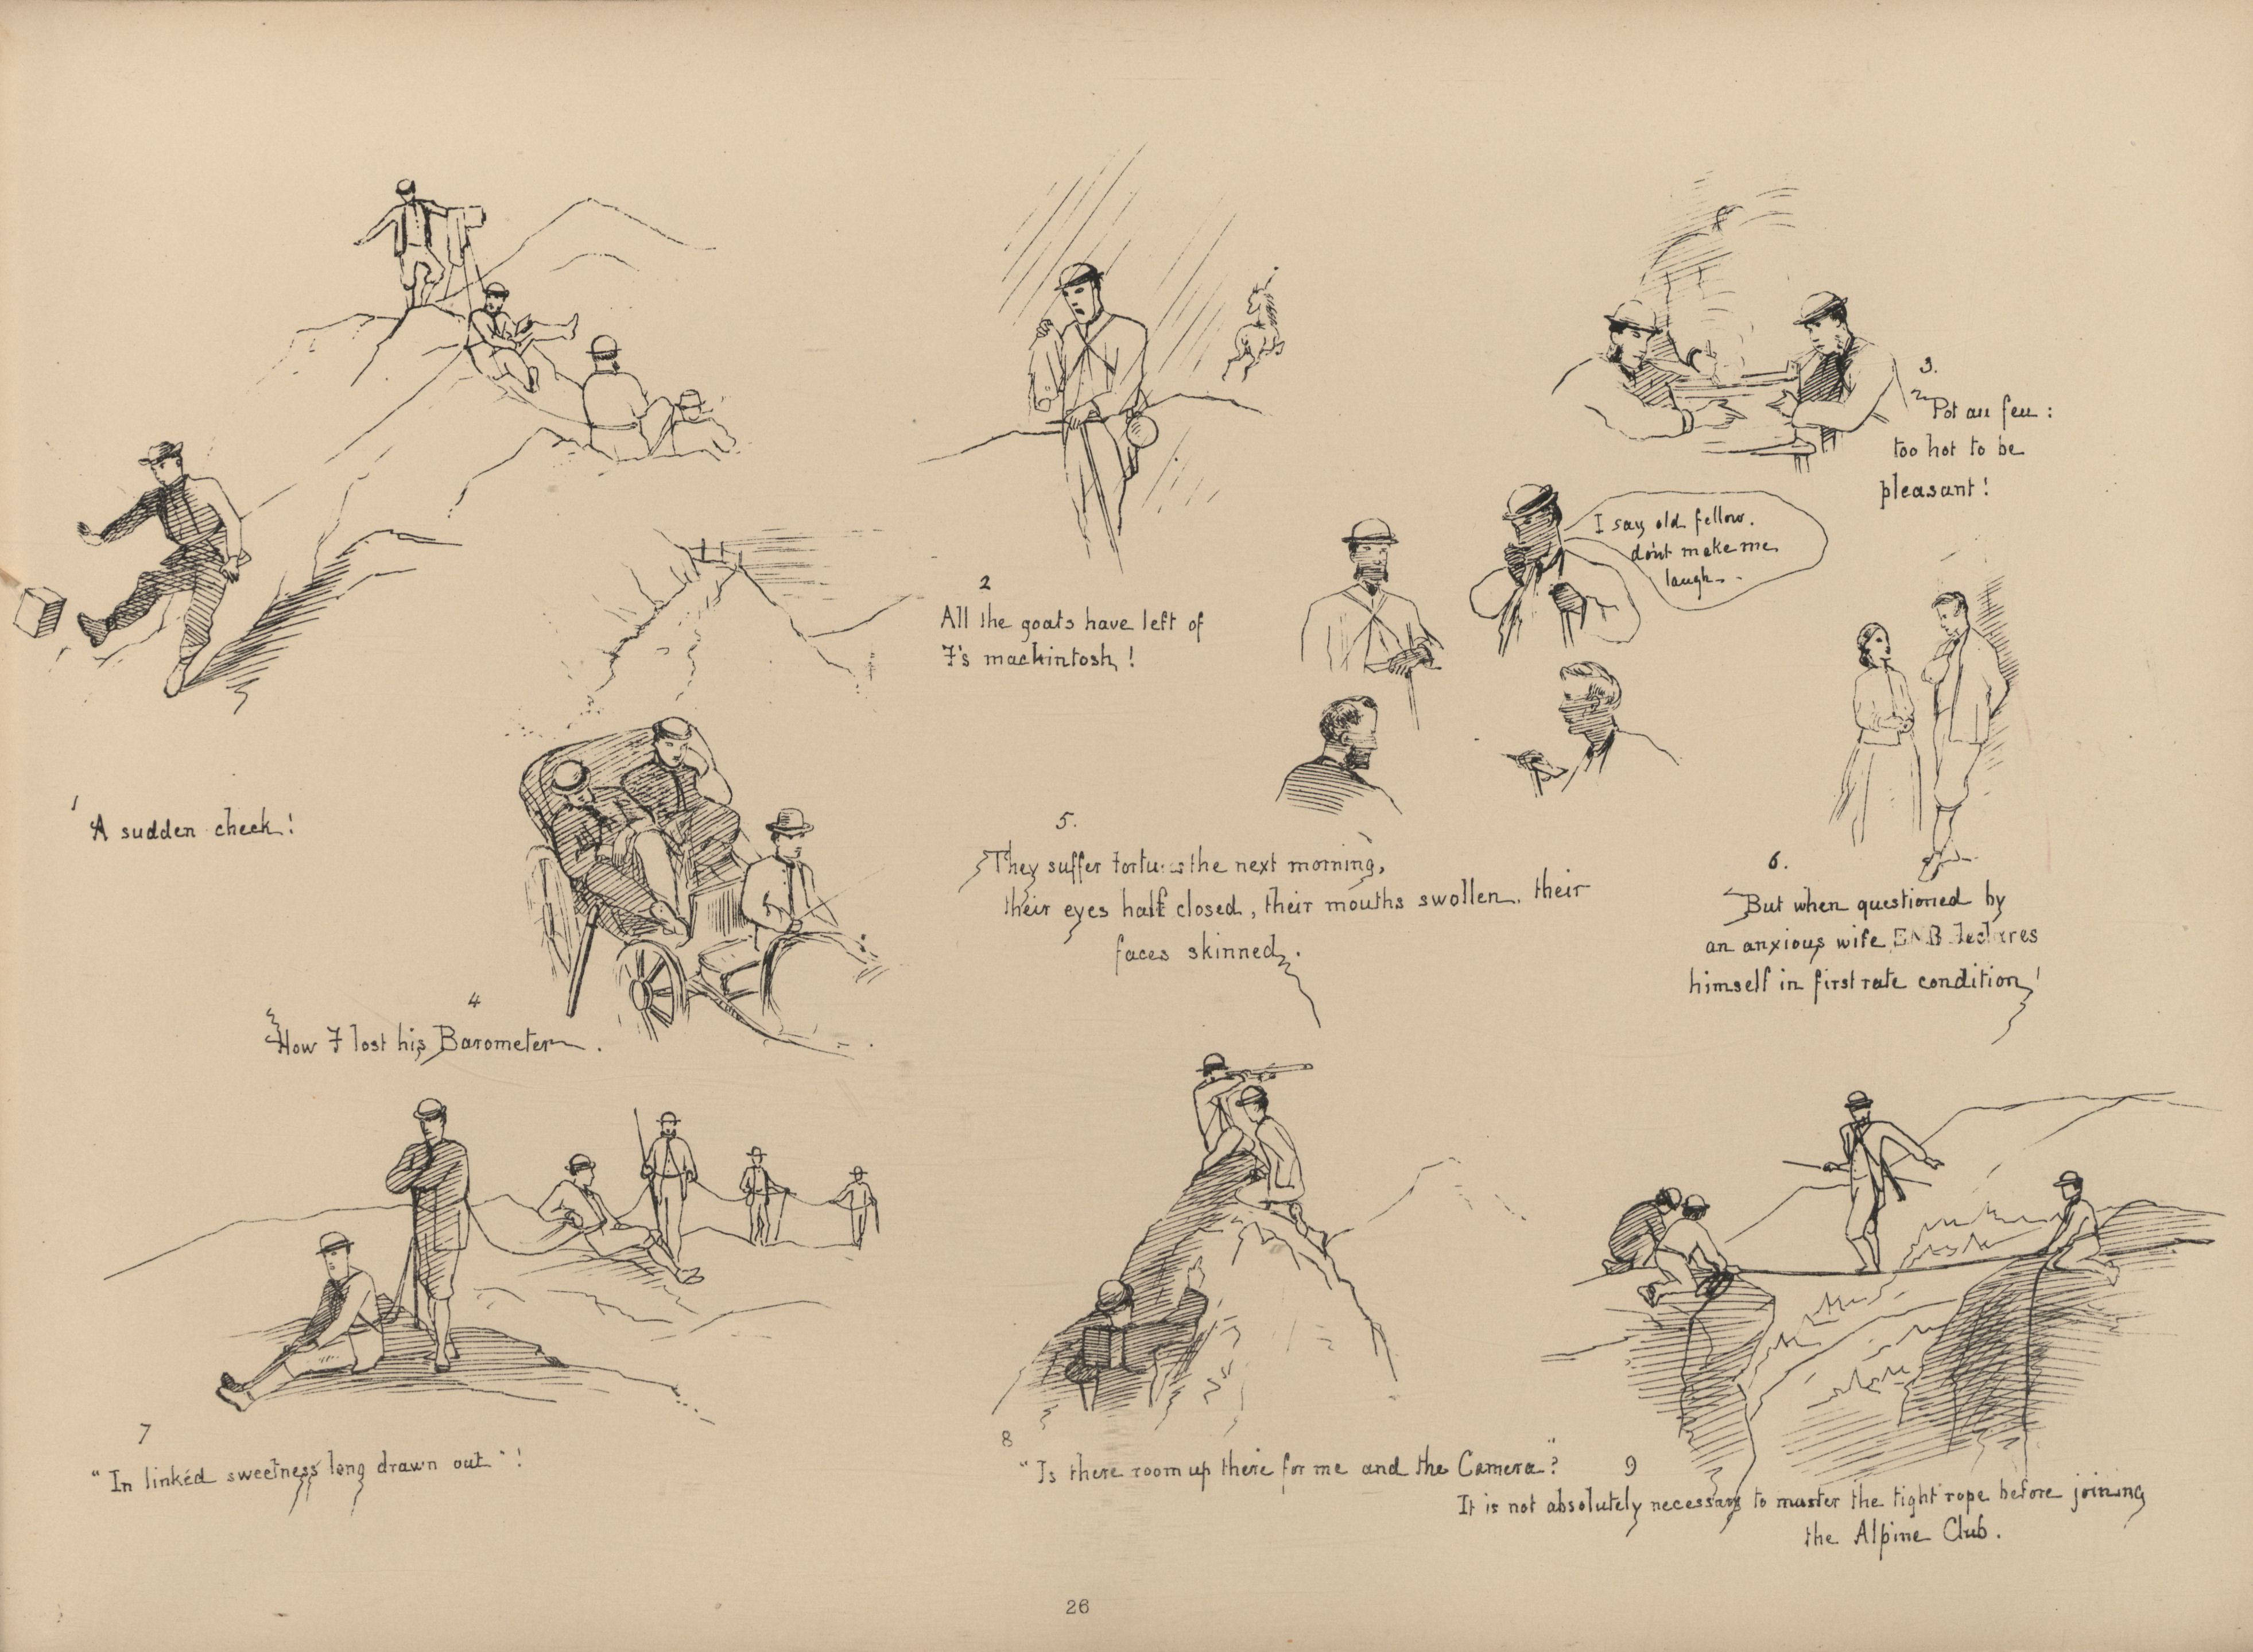 1
A sudden check!
2
All the goats have left of
F's mackintosh!
3.
Pot au feu:
too hot to be
pleasant!
I say old fellow.
dont make me
laugh.
4
How F lost his Barometer.
5.
They suffer the next morning,
their eyes half closed, their mouths swollen. their
faces skinned.
6.
But when questioned by
an anxious wife declares
himself in first rate condition!
7
"In linkéd sweetness long drawn out"!
8
"Is there room up there for me and the Camera?"
9
It is not absolutely necessary to master the tight rope before joining
the Alpine Club.
26